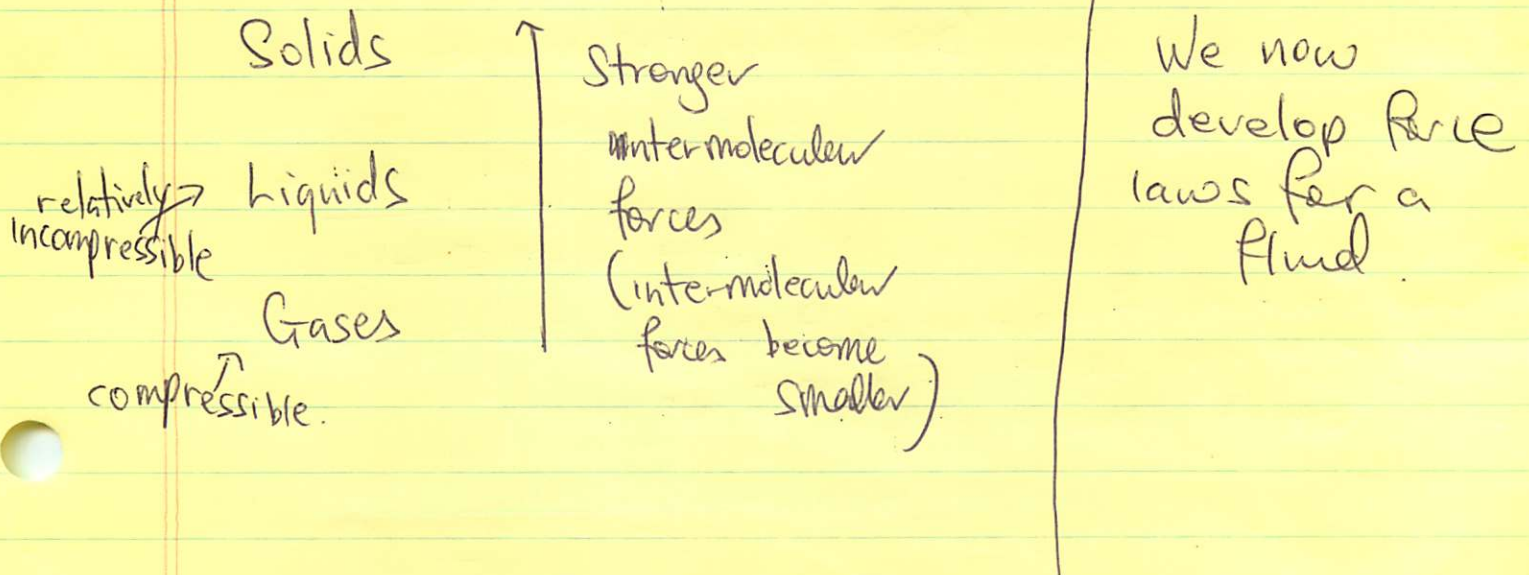 Solids
relatively → Liquids
incompressible
Gases
compressible.
Stronger
intermolecular
forces
(inter-molecular
forces become
smaller)
We now
develop force
laws for a
fluid.